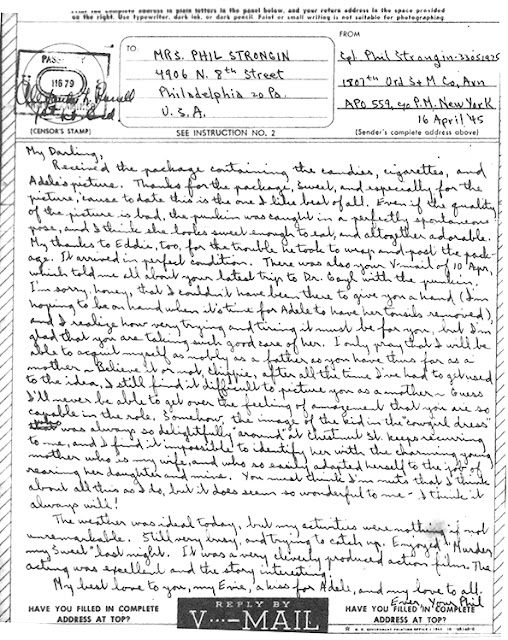 Print the complete address in plain letters in the panel below, and your return address in the space provided
on the right. Use typewriter, dark ink, or dark pencil. Faint or small writing is not suitable for photographing.
TO
MRS. PHIL STRONGIN
4906 N. 8th Street
Philadelphia 20 Pa.
U.S.A.
FROM
Cpl. Phil Strongin-33051925
1807th Ord S+M Co, Avn
APO 559, c/o P.M. New York
16 April '45
PASSED
1679
(CENSOR'S STAMP)
SEE INSTRUCTION NO. 2
(Sender's complete address above)
My Darling,
Received the package containing the candies, cigarettes, and
Adele's picture. Thanks for the package, Sweet, and especially for the
picture, 'cause to date this is the one I like best of all. Even if the quality
of the picture is bad, the punkin was caught in a perfectly spontaneous
pose, and I think she looks sweet enough to eat, and altogether adorable.
My thanks to Eddie, too, for the trouble he took to wrap and post the pack-
age. It arrived in perfect condition. There was also your V-mail of 10 Apr,
which told me all about your latest trip to Dr. with the punkin.
I'm sorry, honey, that I couldn't have been there to give you a hand (I'm
hoping to be on hand when it's time for Adele to have her tonsils removed),
and I realize how very trying and tiring it must be for you, but I'm
glad that you are taking such good care of her. I only pray that I will be
able to acquit myself as nobly as a father as you have thus far as a
mother - Believe it or not, Chippie, after all the time I've had to get used
to the idea, I still find it difficult to picture you as a mother - Guess
I'll never be able to get over the feeling of amazement that you are so
capable in the role. Somehow, the image of the kid in the "cowgirl dress"
was always so delightfully "around" at Chestnut St. keeps recurring
to me, and I find it impossible to identify her with the charming young
mother who is my wife, and who so easily adapted herself to the job of
rearing her daughter and mine. You must think I'm nuts that I think
about all this as I do, but it does seem so wonderful to me - I think it
always will!
The weather was ideal today, but my activities were nothing if not
unremarkable. Still very busy, and trying to catch up. Enjoyed "Murder,
my Sweet" last night. It was a very cleverly produced action film. The
acting was excellent and the story interesting.
My best love to you, my Evie, a kiss for Adele, and my love to all.
Ever, Your Phil
HAVE YOU FILLED IN COMPLETE
ADDRESS AT TOP?
REPLY BY
V···-MAIL
HAVE YOU FILLED IN COMPLETE
ADDRESS AT TOP?